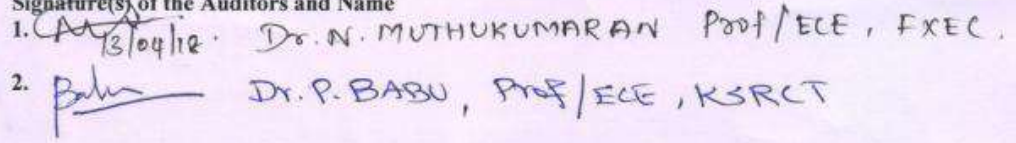 Signature(s) of the Auditors and Name
1. 13/04/18. Dr. N. MUTHUKUMARAN Prof/ECE, FXEC.
2. Babu Dr. P. BABU, Prof/ECE, KSRCT